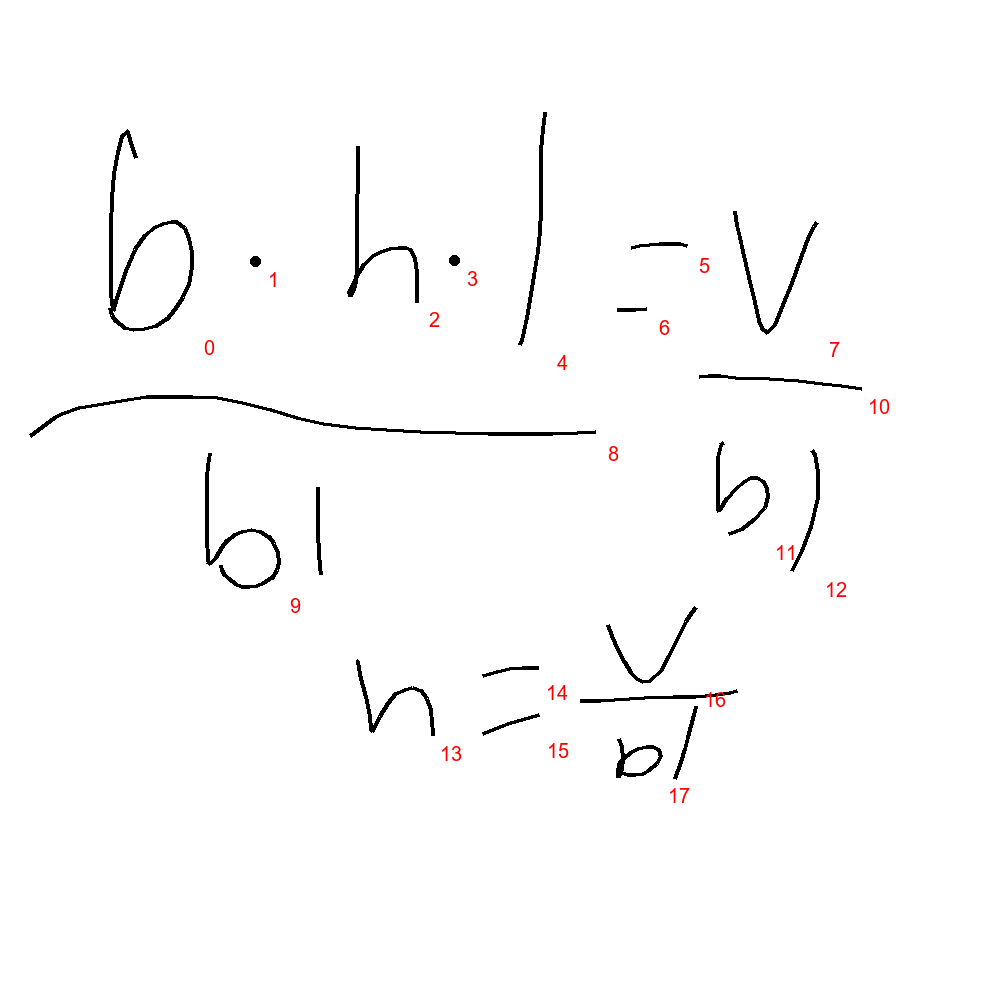 b · h · l = v
bl bl
h = v
bl
0 1 2 3 4 5 6 7 8 9 10 11 12 13 14 15 16 17